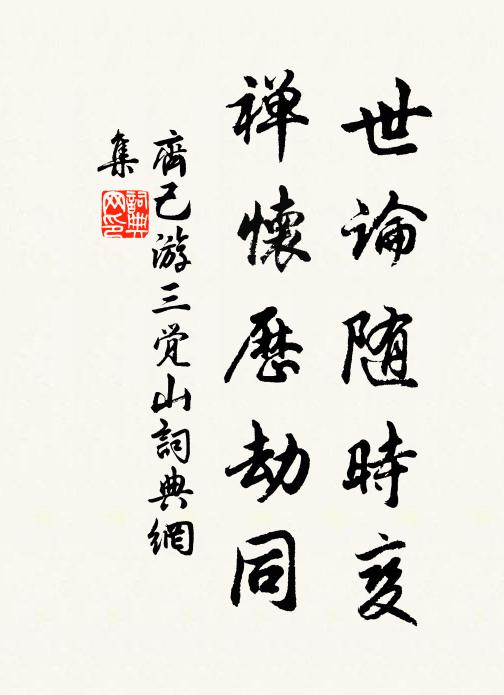 世论随時变
禅懷歷劫同
齊己游三觉山詞典網
集
詞典网印